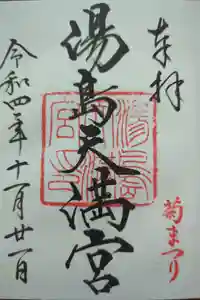 奉拝
菊まつり
湯島天満宮
令和四年十一月廿一日